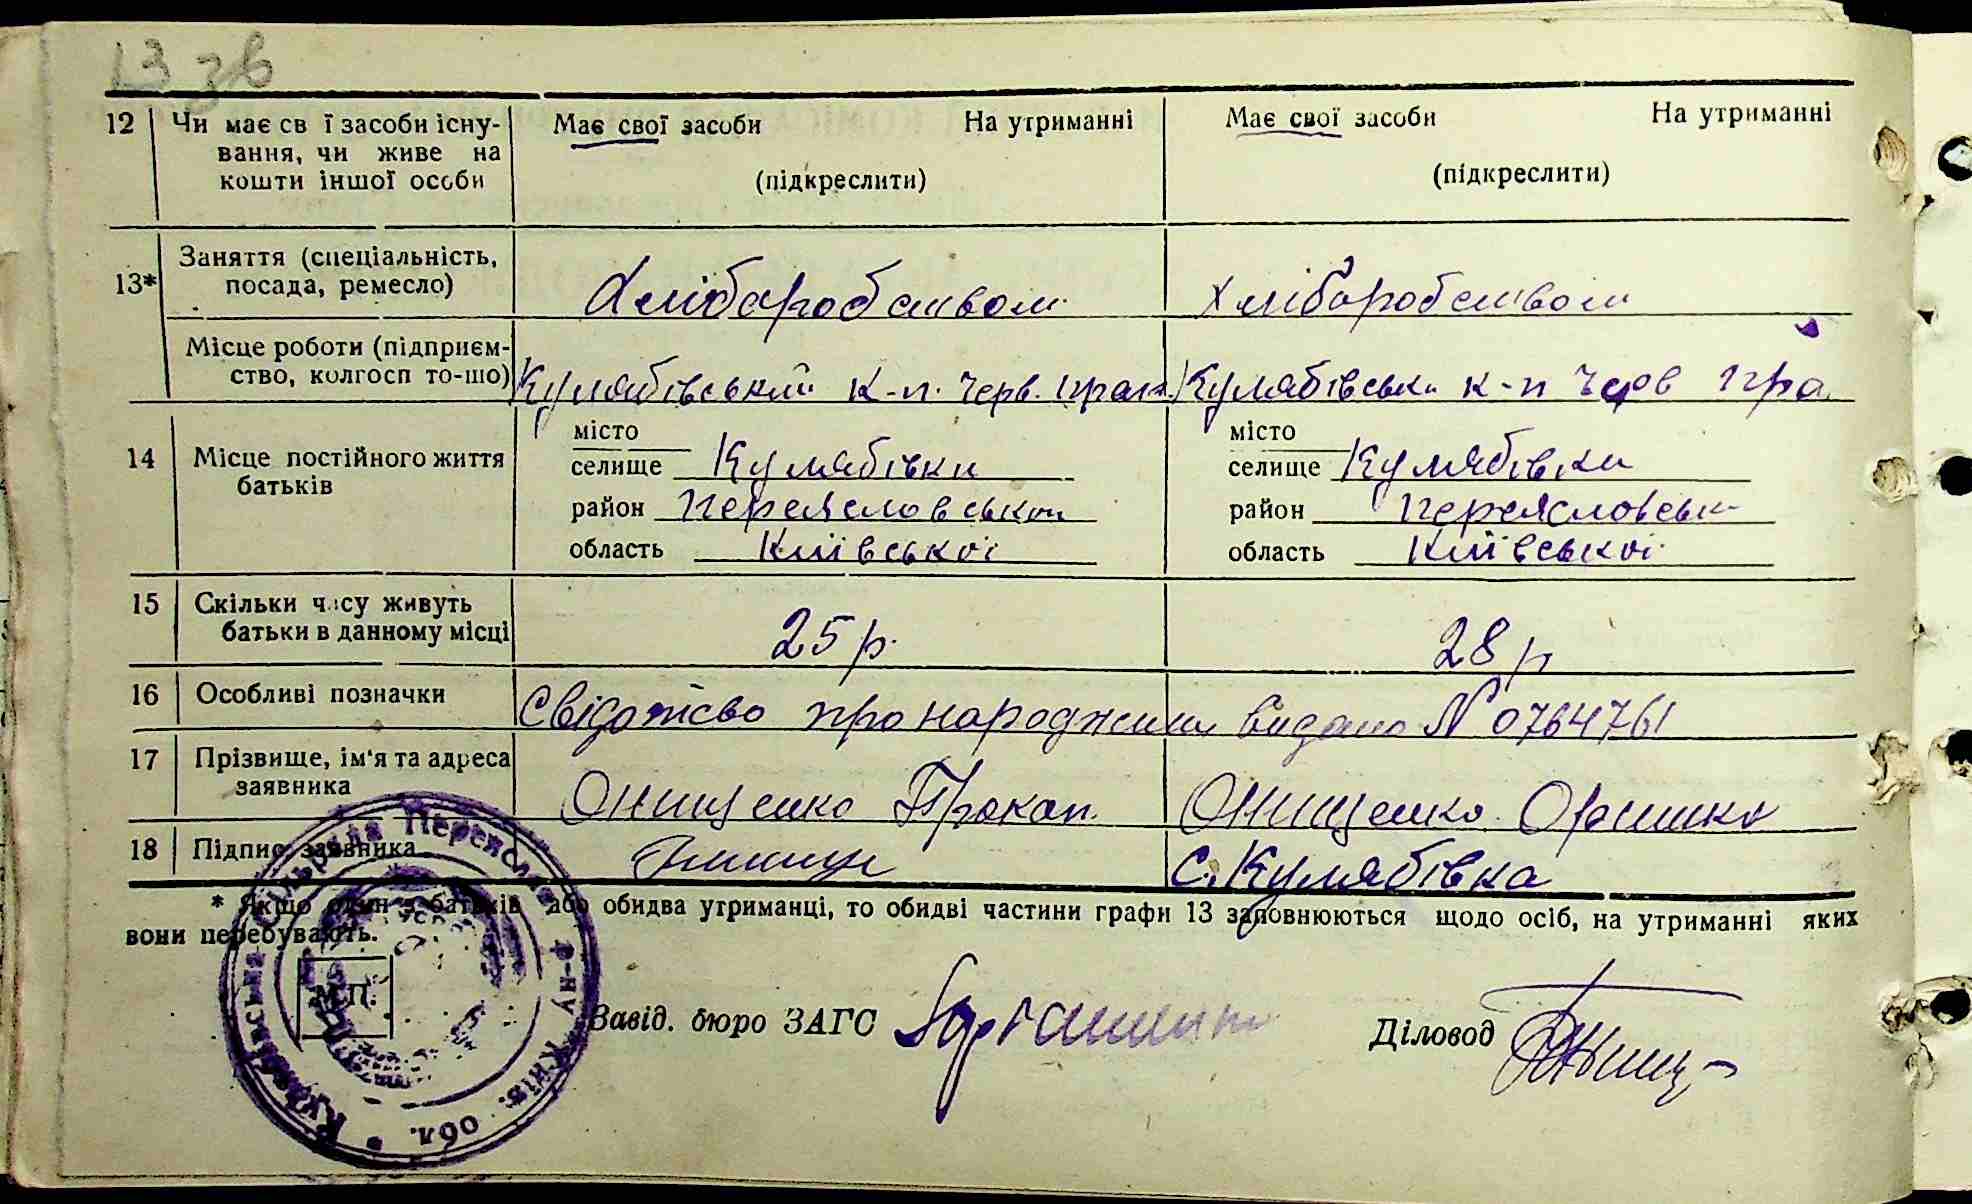 13 зв
12 Чи має св ї засоби існу- Має свої засоби На утриманні Має свої засоби На утриманні
вання, чи живе на
кошти іншої особи (підкреслити) (підкреслити)
13* Заняття (спеціальність,
посада, ремесло) Хліборобством Хліборобством
Місце роботи (підприєм-
ство, колгосп то-що) Кулябівський к-п. Черв. Кулябівськи к-п Черв
14 Місце постійного життя місто місто
батьків селище Кулябівки селище Кулябівки
район Переясловської район Переясловськ
область Київської область Київської
15 Скільки часу живуть
батьки в данному місці 25 р. 28 р
16 Особливі позначки Свідотсво про народження видано N 0764761
17 Прізвище, ім'я та адреса
заявника Онищенко Прокоп. Онищенко Оришка
18 Підпис заявника с. Кулябівка
* Якщо один з батьків або обидва утриманці, то обидві частини графи 13 заповнюються щодо осіб, на утриманні яких
вони перебувають.
М.П.
Завід. бюро ЗАГС Діловод
Кулябівська сільрада Переяслав р-ну Київ. обл.